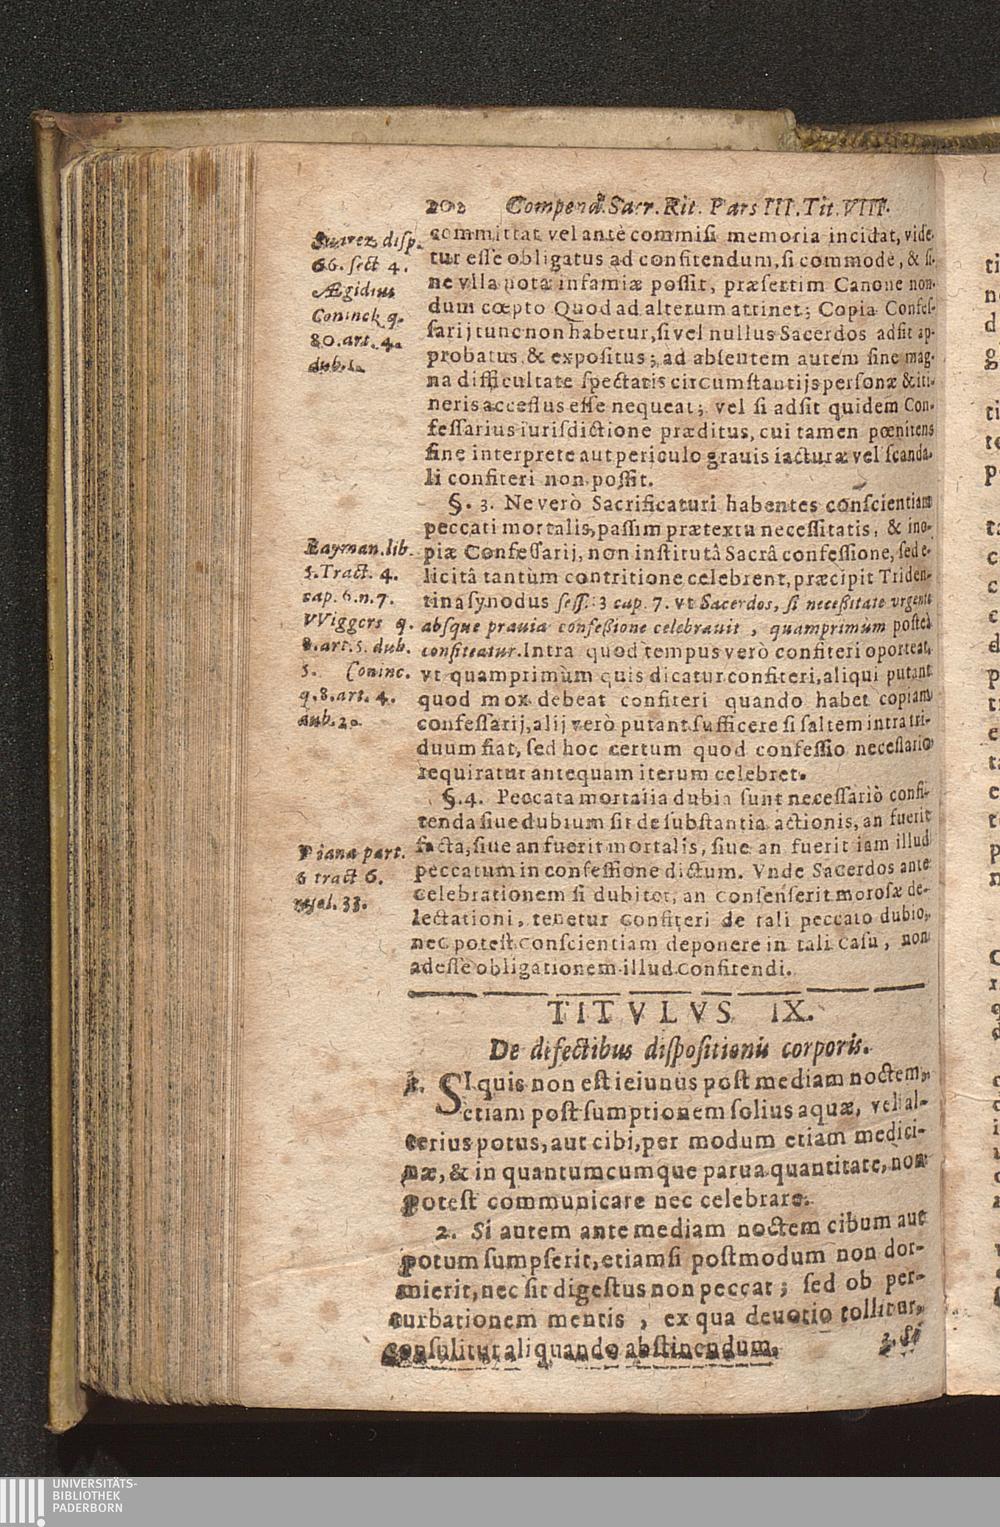 202 Compend. Sacr. Rit. Pars III. Tit. VIII.
committat, vel antè commisi memoria incidat, vide-
tur esse obligatus ad confitendum, si commodè, & si-
ne vlla nota infamiæ possit, præsertim Canone non-
dum cœpto Quod ad alterum attinet; Copia Confes-
sarij tunc non habetur, si vel nullus Sacerdos adsit ap-
probatus & expositus; ad absentem autem sine mag-
na difficultate spectatis circumstantijs personæ & iti-
neris accessus esse nequeat; vel si adsit quidem Con-
fessarius iurisdictione præditus, cui tamen pœnitens
sine interprete aut periculo grauis iacturæ vel scanda-
li confiteri non possit.
Suarez disp.
66. sect 4.
Ægidius
Coninck q.
80. art. 4.
dub. 1.
§. 3. Ne verò Sacrificaturi habentes conscientiam
peccati mortalis, passim prætextu necessitatis, & ino-
piæ Confessarij, non institutâ Sacrâ confessione, sed e-
licitâ tantùm contritione celebrent, præcipit Triden-
tina synodus sess: 3 cap. 7. vt Sacerdos, si necessitate vrgente
absque prauia confessione celebrauit, quamprimùm posteà
confiteatur. Intra quod tempus verò confiteri oporteat,
vt quamprimùm quis dicatur confiteri, aliqui putant
quod mox debeat confiteri quando habet copiam
confessarij, alij verò putant sufficere si saltem intra tri-
duum fiat, sed hoc certum quod confessio necessario
requiratur antequam iterum celebret.
Layman. lib.
5. Tract. 4.
cap. 6. n. 7.
VViggers q.
8. art. 5. dub.
5. Coninc.
q. 8. art. 4.
dub. 20.
§. 4. Peccata mortalia dubia sunt necessariò confi-
tenda siue dubium sit de substantia actionis, an fuerit
facta, siue an fuerit mortalis, siue an fuerit iam illud
peccatum in confessione dictum. Vnde Sacerdos ante
celebrationem si dubitet, an consenserit morosæ de-
lectationi, tenetur confiteri de tali peccato dubio,
nec potest conscientiam deponere in tali casu, non
adesse obligationem illud confitendi.
Diana part.
6 tract 6.
resol. 33.
TITVLVS IX.
De defectibus dispositionis corporis.
1. SI quis non est ieiunus post mediam noctem,
etiam post sumptionem solius aquæ, vel al-
terius potus, aut cibi, per modum etiam medici-
næ, & in quantumcumque parua quantitate, non
potest communicare nec celebrare.
2. Si autem ante mediam noctem cibum aut
potum sumpserit, etiamsi postmodum non dor-
mierit, nec sit digestus non peccat; sed ob per-
turbationem mentis, ex qua deuotio tollitur,
consulitur aliquando abstinendum.
3. Si
UNIVERSITÄTS-
BIBLIOTHEK
PADERBORN